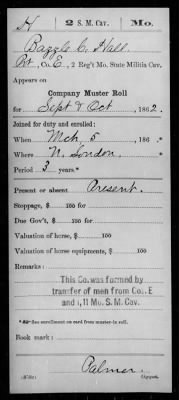 H 2 S. M. Cav. Mo.
Bazzle C. Hall
Pvt, Co. E, 2 Reg't Mo. State Militia Cav.
Appears on
Company Muster Roll
for Sept & Oct, 1862.
Joined for duty and enrolled:
When Mch 5, 186 .*
Where N. London.
Period 3 years*
Present or absent Present.
Stoppage, $ 100 for
Due Gov't, $ 100 for
Valuation of horse, $ 100
Valuation of horse equipments, $ 100
Remarks:
This Co. was formed by
transfer of men from Co. E
and 11 Mo. S. M. Cav.
* See enrollment on card from muster-in roll.
Book mark:
Palmer.
Copyist.